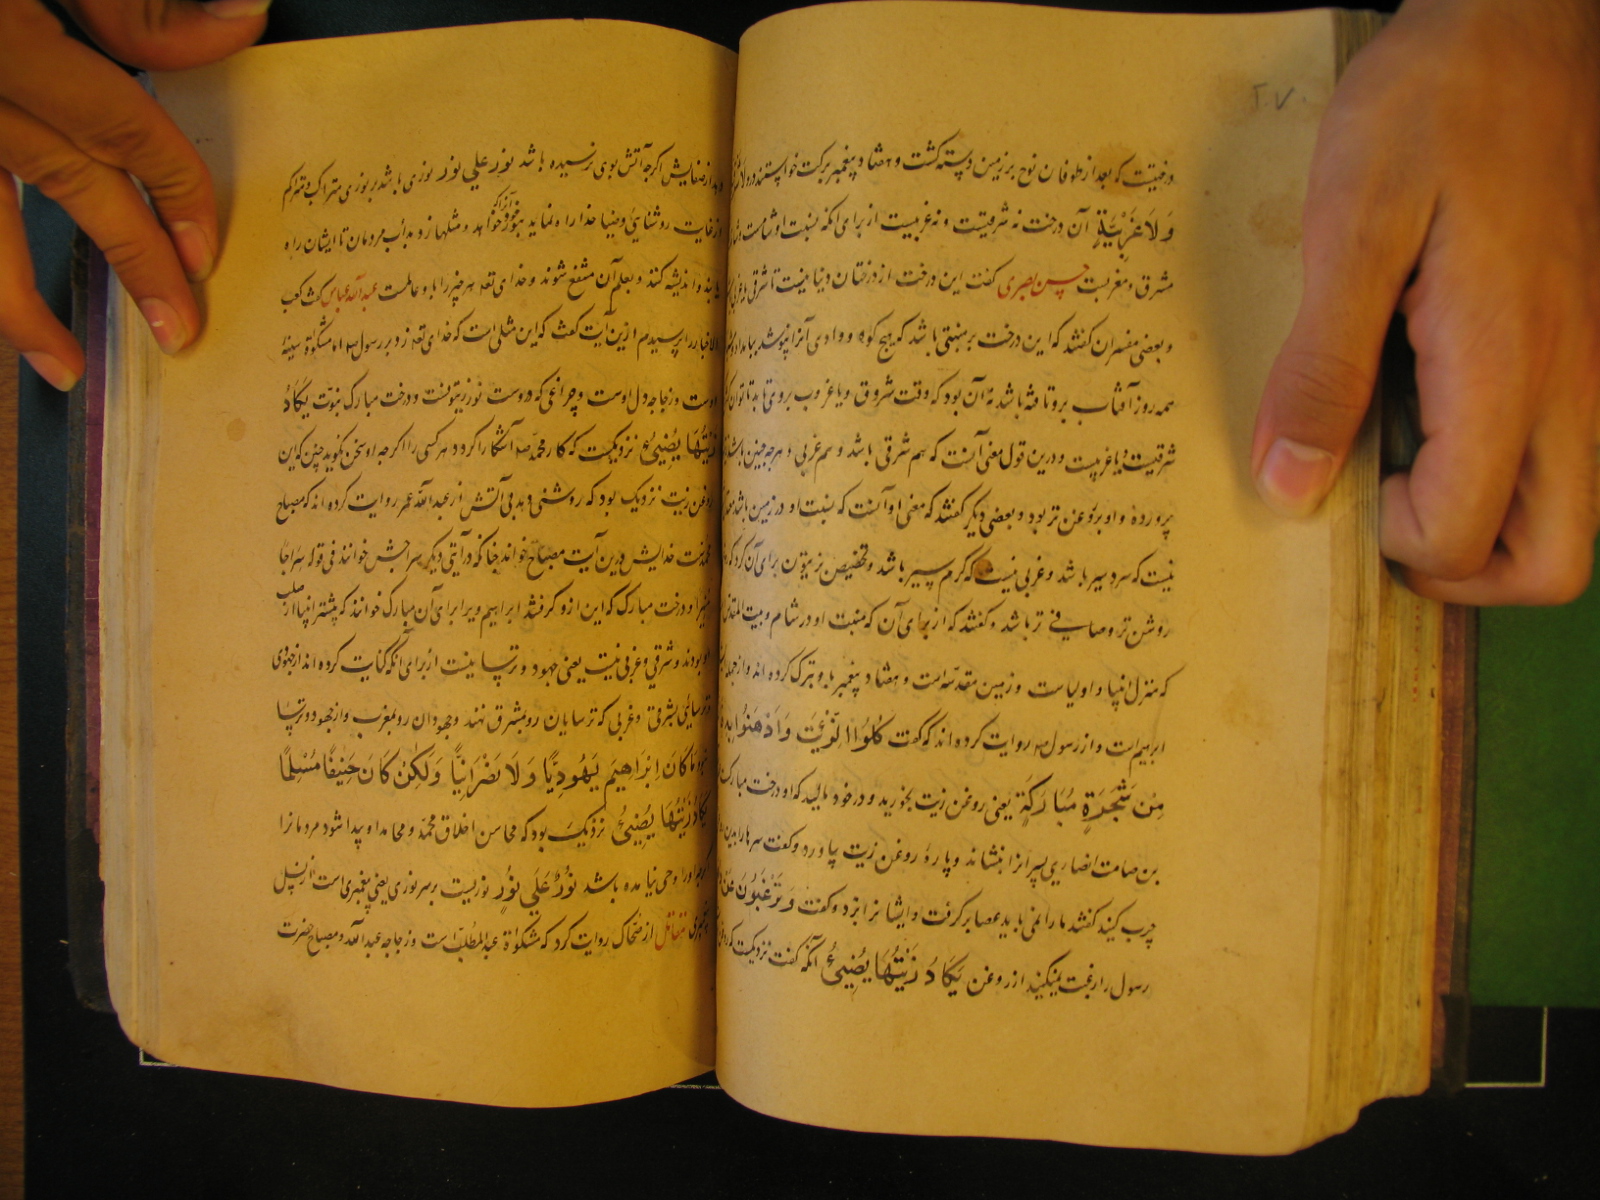 درختیست که بعد از طوفان نوح بر زمین رسته گشت و هفتاد پیغمبر برکت خواستند در ولا
وَلَا غَرْبِیَّةٍ آن درخت نه شرقیست و نه غربیست از برای انکه نسبت او شامست
مشرق و مغربست حسن بصری کفت این درخت از درختان دنیا نیست تا شرقی یا غربی
و بعضی مفسران کفتند که این درخت بر منبتی باشد که هیچ کوه و وادی آنرا نپوشد
همه روز آفتاب برو تافته باشد نه آن بود که وقت شروق و یا غروب بروی تابد
شرقیست و یا غربیست و درین قول معنی آنست که هم شرقی باشد و هم غربی و هرچه چنین باشد
پرورده و او بروغن تر بود و بعضی دیگر کفتند که معنی او آنست که نسبت او در زمین باشد
نیست که سردسیر باشد و غربی نیست که کرم سیر باشد و تخصیص زیتون برای آن کرد که
روشن تر و صافی تر باشد و کفتند که از برای آن که منبت او در شام و بیت المقدس
که منزل انبیا و اولیاست و زمین مقدسه است و هفتاد پیغمبر بدو تبرک کرده اند و از جمله
ابرهیم است و از رسول صم روایت کرده اند که کفت کُلُوا الزَّیْتَ وَادَّهِنُوا بِهِ
مِنْ شَجَرَةٍ مُبَارَکَةٍ یعنی روغن زیت بخورید و در خود مالید که او درخت مبارک
بن صامت انصاری پسرانرا بنشاند و پارهٔ روغن زیت بیاورد و کفت سرها را بدین
چرب کنید کفتند ما را نمی باید عصا بر کرفت و ایشانرا بزد و کفت وَتَرْغَبُونَ عَنْ
رسول را رغبت نمیکنید از روغن یَکَادُ زَیْتُهَا یُضِیئُ آنکه کفت نزدیکست که
از صفایش اکرچه آتش بوی نرسیده باشد نور علی نور نوری باشد بر نوری متراکب و متراکم
از غایت روشنایی و ضیا خدا را و نماید بنور خود آنرا که خواهد و مثلها زد بدأب مردمان تا ایشان راه
یابند و اندیشه کنند و بعلم آن منتفع شوند و خدای تعه بهر چیز دانا و عالمست عبدالله عباس کفت کعب
الاخبار را پرسیدم ازین آیت کفت که این مثلی است که خدای تعه زد بر رسول صم اما مشکوة سینهٔ
اوست و زجاجه دل اوست و چراغی که دروست نور زیتونست و درخت مبارک نبوت یَکَادُ
زَیْتُهَا یُضِیئُ نزدیکست که کار محمد صم آشکارا کردد هر کسی را اکرچه او سخن نکوید چنین که این
روغن زیت نزدیک بود که روشنی دهد بی آتش از عبدالله عمر روایت کرده اند که مصباح
محمدست خدایش درین آیت مصباح خواند چنانکه در آیتی دیکر سراجش خوانند فی قوله سِرَاجًا
مُنِیرًا و درخت مبارک که این ازو کرفتند ابراهیم و برا برای آن مبارک خوانند که بیشتر انبیا از صلب
او بودند و شرقی و غربی نیست یعنی جهود و ترسا نیست از برای آنکه کنایت کرده اند از جهودی
و ترسائی بشرقی و غربی که ترسایان رو بمشرق نهند و جهودان رو بمغرب و از جهود و ترسا
نبود مَا کَانَ اِبْرَاهِیمُ یَهُودِیًّا وَلَا نَصْرَانِیًّا وَلَکِنْ کَانَ حَنِیفًا مُسْلِمًا
یَکَادُ زَیْتُهَا یُضِیئُ نزدیک بود که محاسن اخلاق محمد و محامد او پیدا شود مردمانرا
اکرچه او را وحی نیامده باشد نُورٌ عَلَی نُورٍ نوریست بر سر نوری یعنی پیغمبری است از نسل
پیغمبری مقاتل از ضحاک روایت کرد که مشکوة عبدالمطلب است و زجاجه عبدالله و مصباح حضرت